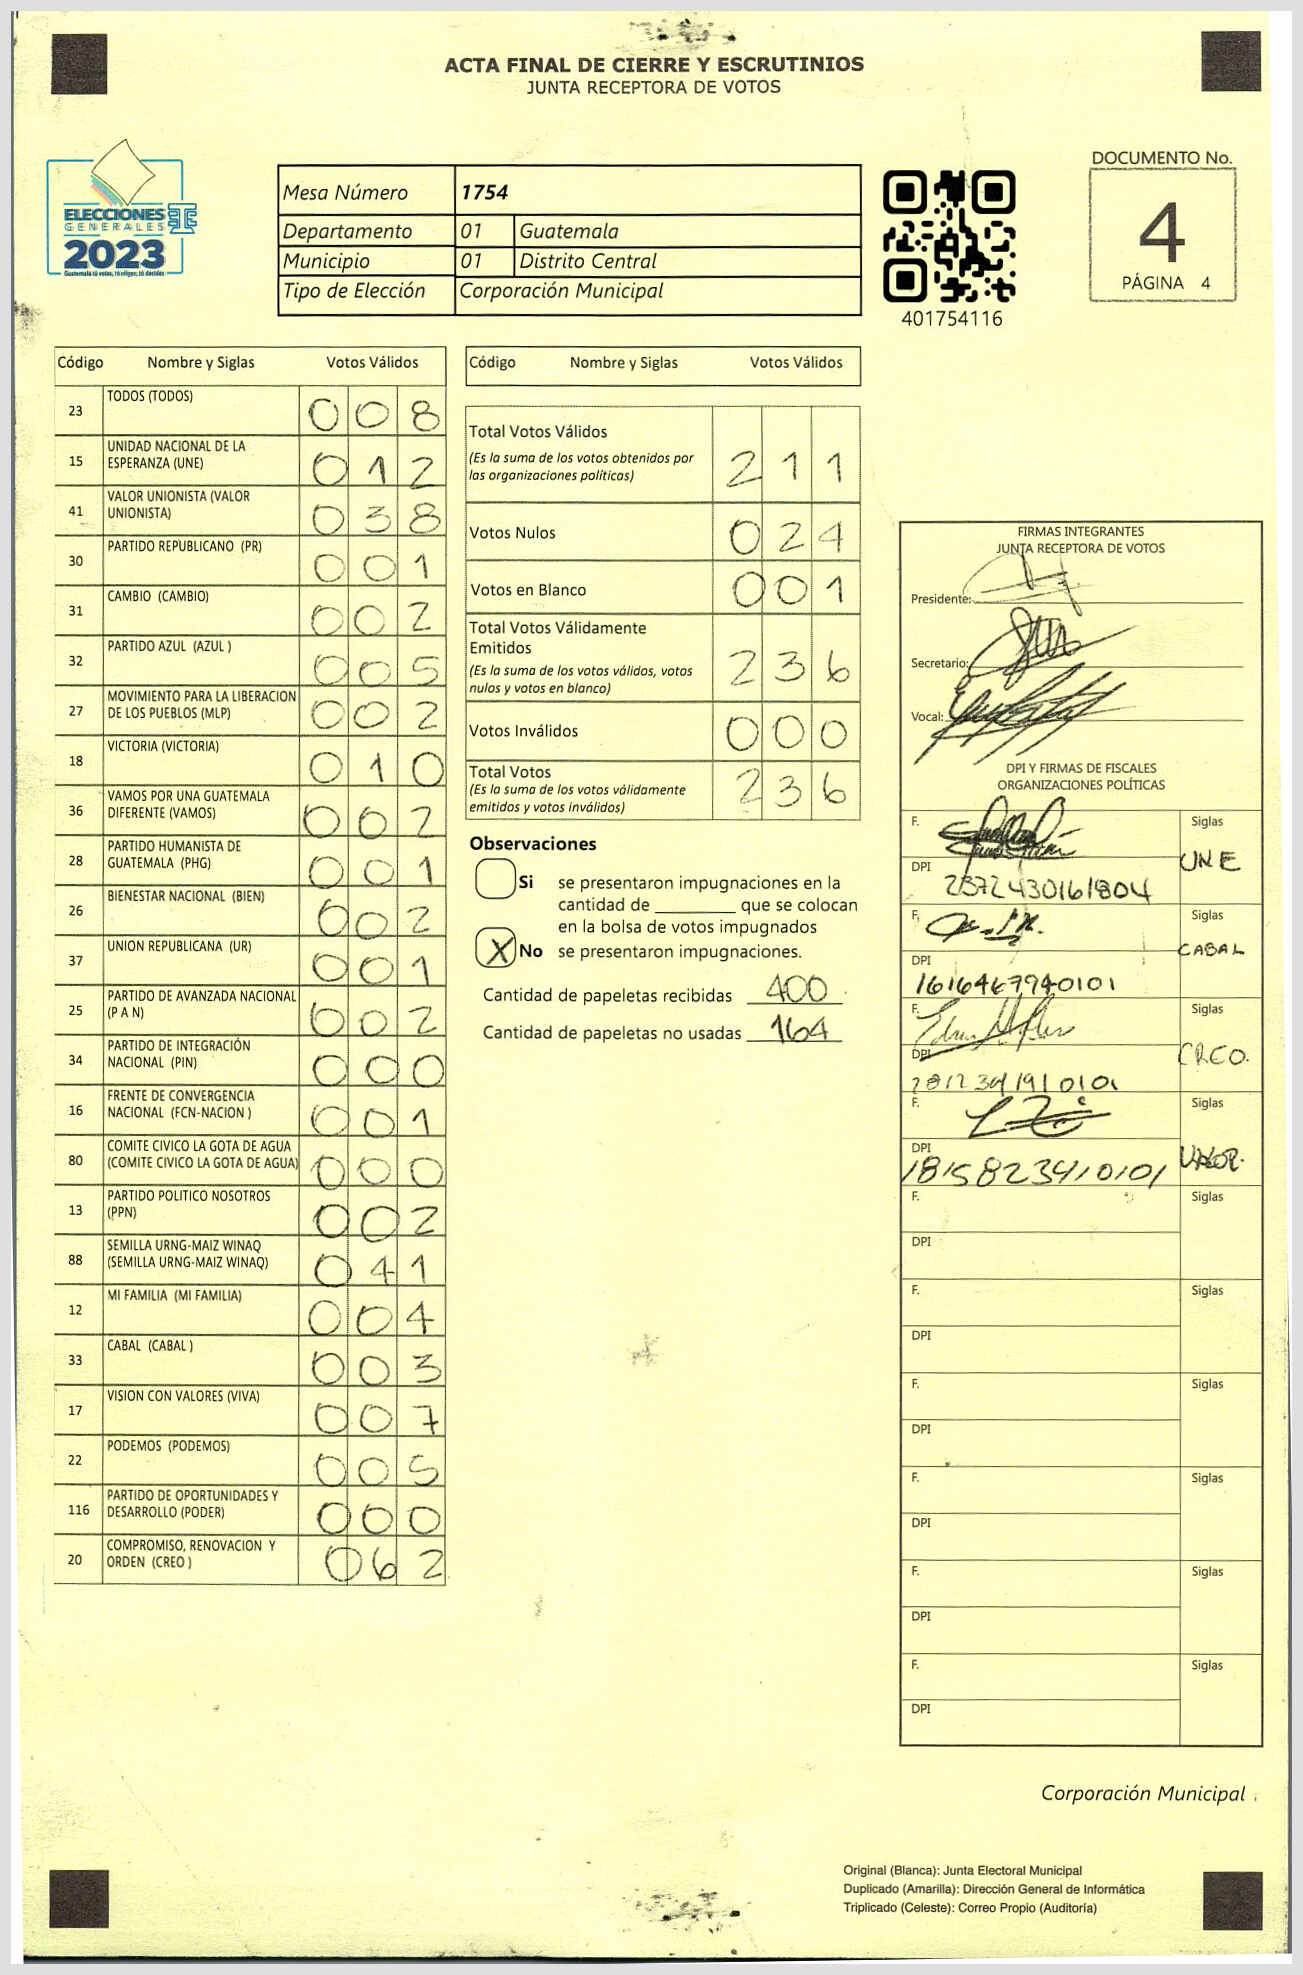 ACTA FINAL DE CIERRE Y ESCRUTINIOS
JUNTA RECEPTORA DE VOTOS
ELECCIONES
GENERALES
2023
Guatemala tú votas, tú eliges, tú decides
Mesa Número 1754
Departamento 01 Guatemala
Municipio 01 Distrito Central
Tipo de Elección Corporación Municipal
401754116
DOCUMENTO No.
4
PÁGINA 4
Código Nombre y Siglas Votos Válidos
23 TODOS (TODOS) 008
15 UNIDAD NACIONAL DE LA
ESPERANZA (UNE) 012
41 VALOR UNIONISTA (VALOR
UNIONISTA) 038
30 PARTIDO REPUBLICANO (PR) 001
31 CAMBIO (CAMBIO) 002
32 PARTIDO AZUL (AZUL ) 005
27 MOVIMIENTO PARA LA LIBERACION
DE LOS PUEBLOS (MLP) 002
18 VICTORIA (VICTORIA) 010
36 VAMOS POR UNA GUATEMALA
DIFERENTE (VAMOS) 002
28 PARTIDO HUMANISTA DE
GUATEMALA (PHG) 001
26 BIENESTAR NACIONAL (BIEN) 002
37 UNION REPUBLICANA (UR) 001
25 PARTIDO DE AVANZADA NACIONAL
(P A N) 002
34 PARTIDO DE INTEGRACIÓN
NACIONAL (PIN) 000
16 FRENTE DE CONVERGENCIA
NACIONAL (FCN-NACION ) 001
80 COMITE CIVICO LA GOTA DE AGUA
(COMITE CIVICO LA GOTA DE AGUA) 000
13 PARTIDO POLITICO NOSOTROS
(PPN) 002
88 SEMILLA URNG-MAIZ WINAQ
(SEMILLA URNG-MAIZ WINAQ) 041
12 MI FAMILIA (MI FAMILIA) 004
33 CABAL (CABAL ) 003
17 VISION CON VALORES (VIVA) 007
22 PODEMOS (PODEMOS) 005
116 PARTIDO DE OPORTUNIDADES Y
DESARROLLO (PODER) 000
20 COMPROMISO, RENOVACION Y
ORDEN (CREO ) 062
Código Nombre y Siglas Votos Válidos
Total Votos Válidos
(Es la suma de los votos obtenidos por
las organizaciones políticas) 211
Votos Nulos 024
Votos en Blanco 001
Total Votos Válidamente
Emitidos
(Es la suma de los votos válidos, votos
nulos y votos en blanco) 236
Votos Inválidos 000
Total Votos
(Es la suma de los votos válidamente
emitidos y votos inválidos) 236
Observaciones
Si se presentaron impugnaciones en la
cantidad de ________ que se colocan
en la bolsa de votos impugnados
X No se presentaron impugnaciones.
Cantidad de papeletas recibidas 400
Cantidad de papeletas no usadas 164
FIRMAS INTEGRANTES
JUNTA RECEPTORA DE VOTOS
Presidente:
Secretario:
Vocal:
DPI Y FIRMAS DE FISCALES
ORGANIZACIONES POLÍTICAS
F. Siglas
UNE
DPI
2372430161804
F. Siglas
CABAL
DPI
1616467940101
F. Siglas
CREO.
DPI
F. Siglas
VALOR.
DPI
1815823410101
F. Siglas
DPI
F. Siglas
DPI
F. Siglas
DPI
F. Siglas
DPI
F. Siglas
DPI
F. Siglas
DPI
Corporación Municipal
Original (Blanca): Junta Electoral Municipal
Duplicado (Amarilla): Dirección General de Informática
Triplicado (Celeste): Correo Propio (Auditoría)